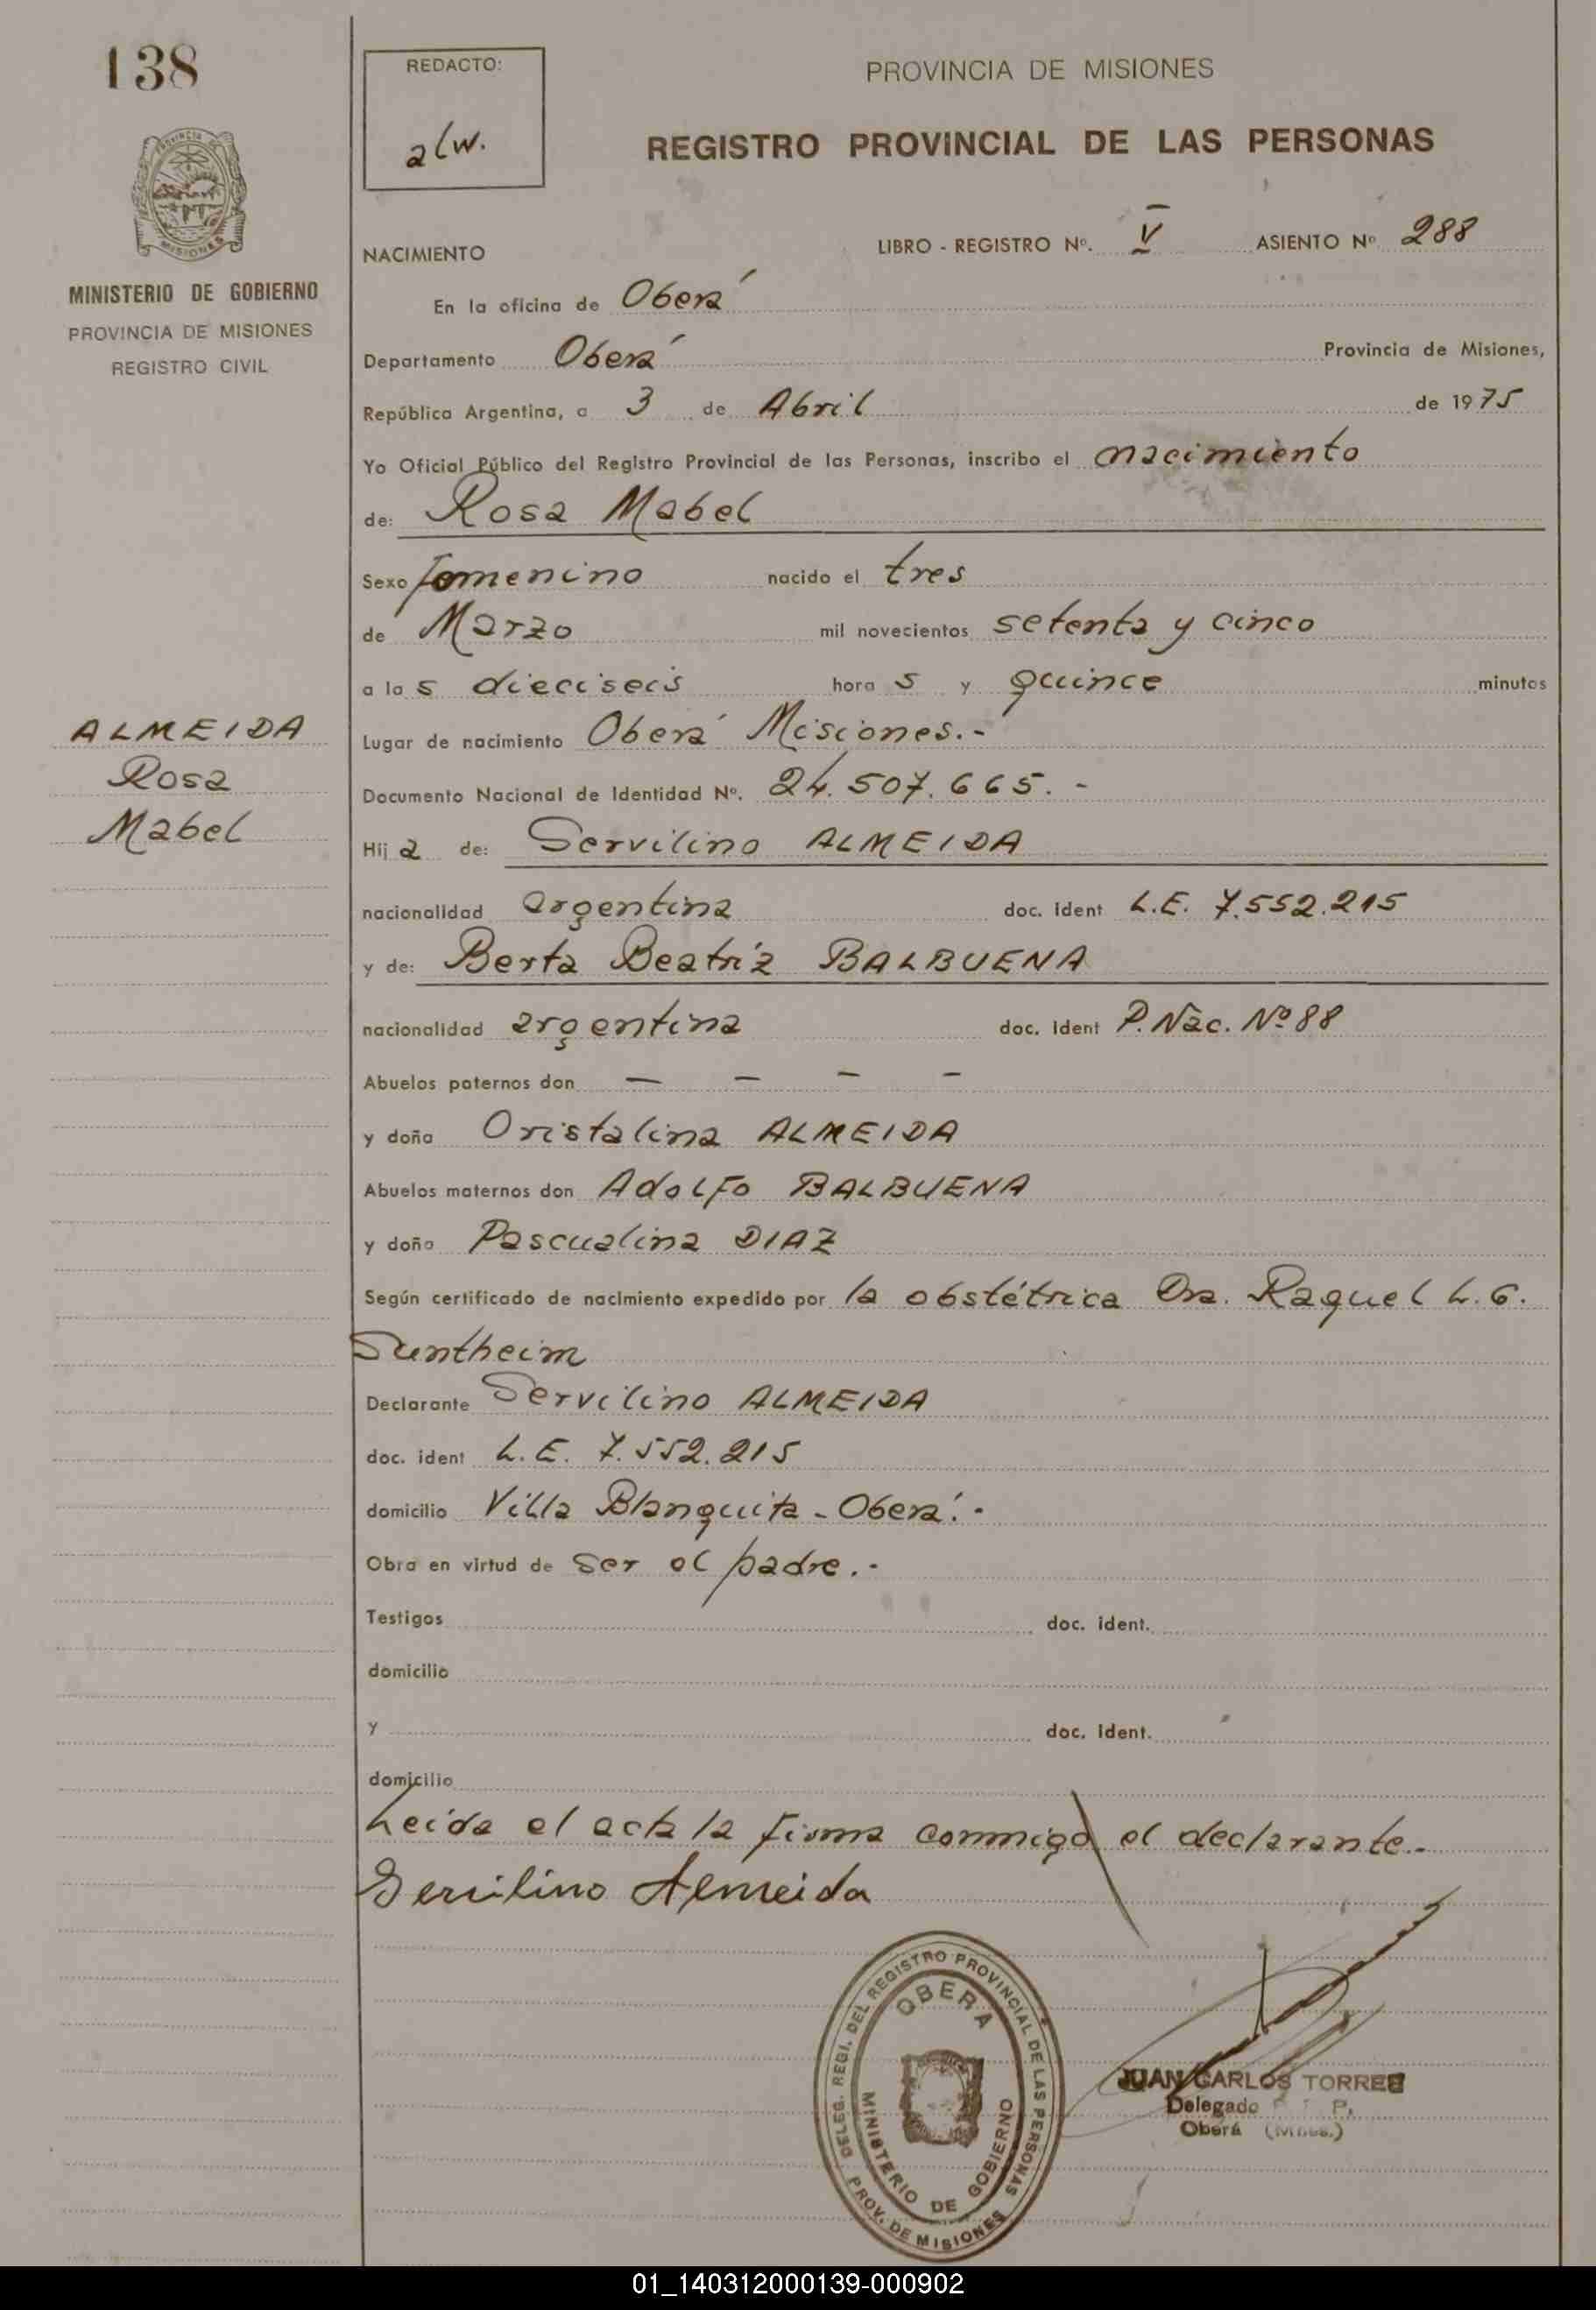 138
REDACTO:
alw.
PROVINCIA DE MISIONES
REGISTRO PROVINCIAL DE LAS PERSONAS
PROVINCIA
MISIONES
MINISTERIO DE GOBIERNO
PROVINCIA DE MISIONES
REGISTRO CIVIL
NACIMIENTO
LIBRO - REGISTRO Nº. V ASIENTO Nº 288
En la oficina de Oberá
Departamento Oberá Provincia de Misiones,
República Argentina, a 3 de Abril de 1975
Yo Oficial Público del Registro Provincial de las Personas, inscribo el nacimiento
de: Rosa Mabel
Sexo femenino nacido el tres
de Marzo mil novecientos setenta y cinco
a las dieciseis horas y quince minutos
ALMEIDA
Rosa
Mabel
Lugar de nacimiento Oberá Misiones.-
Documento Nacional de Identidad Nº. 24.507.665.-
Hija de: Servilino ALMEIDA
nacionalidad argentina doc. ident L.E. 7.552.215
y de: Berta Beatriz BALBUENA
nacionalidad argentina doc. ident P. Nac. Nº 88
Abuelos paternos don — — — —
y doña Oristalina ALMEIDA
Abuelos maternos don Adolfo BALBUENA
y doña Pascualina DIAZ
Según certificado de nacimiento expedido por la obstétrica Dra. Raquel L. G.
Suntheim
Declarante Servilino ALMEIDA
doc. ident L.E. 7.552.215
domicilio Villa Blanquita - Oberá.-
Obra en virtud de ser el padre.-
Testigos doc. ident.
domicilio
y doc. ident.
domicilio
Leída el acta la firma conmigo el declarante.-
Servilino Almeida
DELEG. REGI. DEL REGISTRO PROVINCIAL DE LAS PERSONAS
OBERA
MINISTERIO DE GOBIERNO
PROV. DE MISIONES
JUAN CARLOS TORRES
Delegado P.
Oberá (Mnes.)
01_140312000139-000902